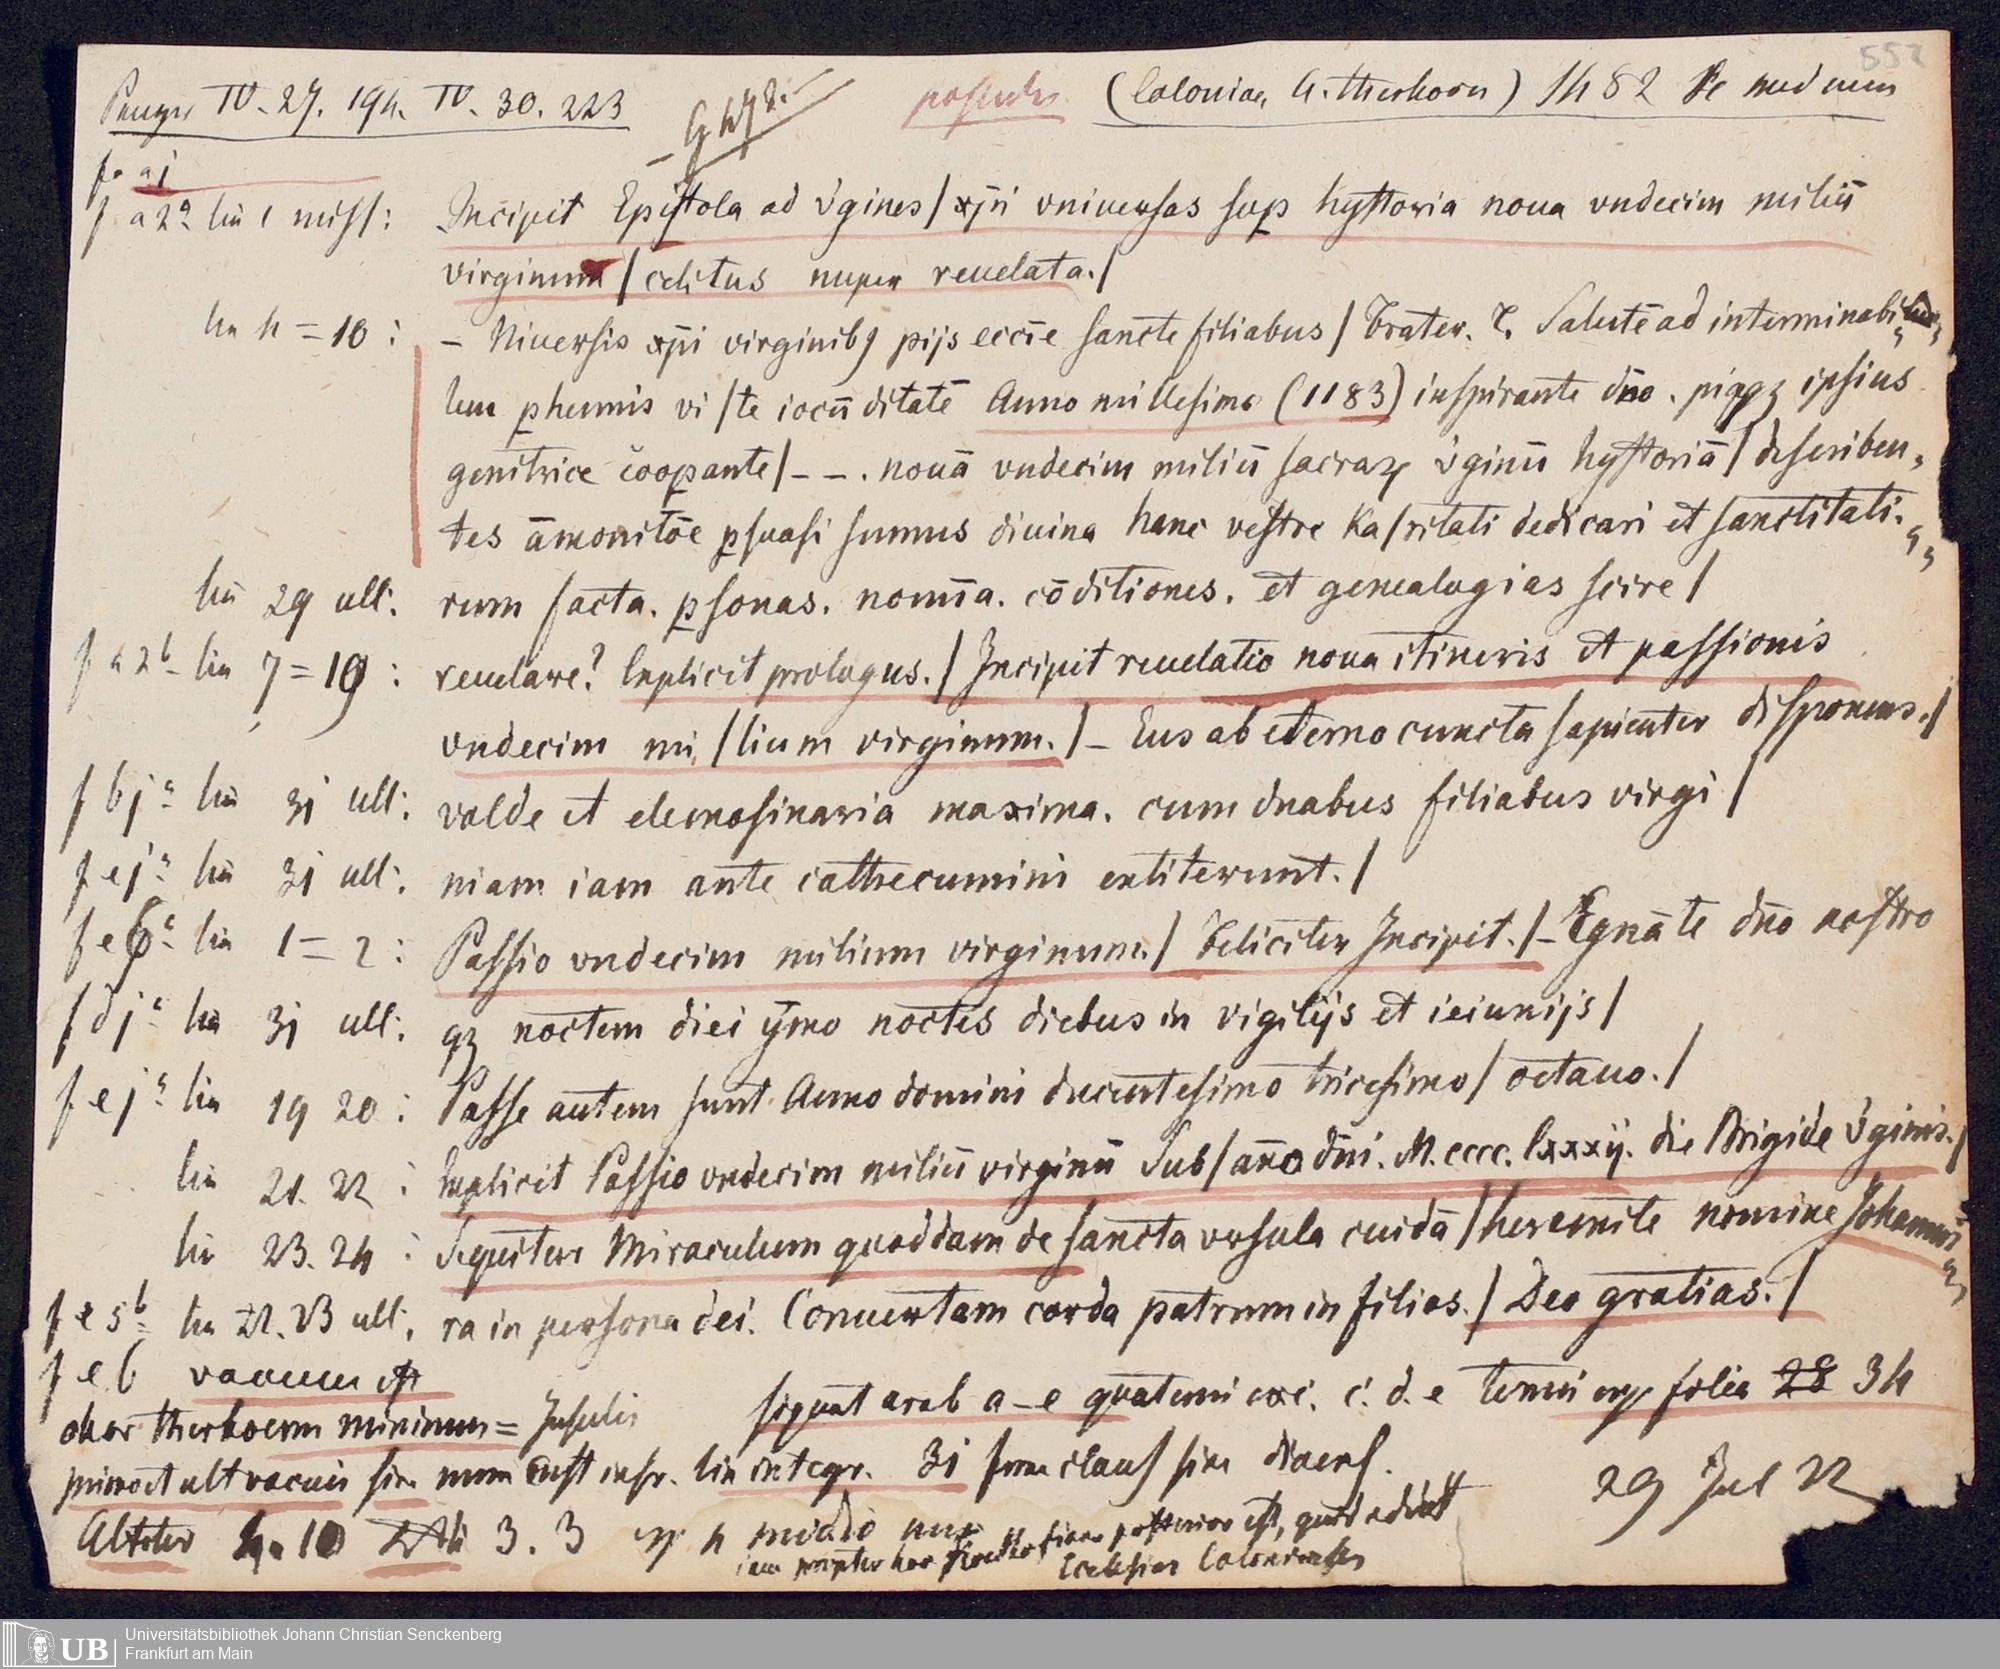 552
Panzer IV. 27. 194. IV. 30. 223
G 478.
(Coloniae, A. therhoern) 1482
f. a j
f a 2ª lin 1 miss: Incipit Epistola ad v̾gines / xp̄i vniuersas sup hystoria noua vndecim miliū
virginum / celitus nuper reuelata. /
lin 4 = 10 : – Niuersis xp̄i virginibȝ pijs eccīe sancte filiabus / Frater. I. Salutē ad interminabi
lem phennis vi / te iocūditatē Anno millesimo (1183) inspirante dn̄o. ipsius
genitrice coopante / – – . nouā vndecim miliū sacraꝝ v̾ginū hystoriā / describen,
tes āmonitōe psuasi sumus diuina hanc vestre Ka / ritati dedicari et sanctitati.
lin 29 ult: rum facta. psonas. nomīa. cōditiones. et genealogias scire /
f a 2ᵇ lin 7 = 10 : reuelare? Explicit prologus. / Incipit reuelatio noua itineris et passionis
vndecim mi / lium virginum. / – Eus ab eterno cuncta sapienter disponens. /
f b jª lin 31 ult: valde et elemosinaria maxima. cum duabus filiabus virgi /
f c jª lin 31 ult: niam iam ante cathecumini extiterunt. /
f c 6ª lin 1 = 2 : Passio vndecim milium virginum. / Feliciter Incipit. / – Egnāte dn̄o nostro
f d jª lin 31 ult: qȝ noctem diei ymo noctes diebus in vigilijs et ieiunijs /
f e jª lin 19 20 : Passe autem sunt Anno domini ducentesimo tricesimo / octauo. /
lin 21. 22 : Explicit Passio vndecim miliū virginū Sub / an̄o dn̄i. M. cccc. lxxxij. die Brigide v̾ginis. /
lin 23. 24 : Sequitur Miraculum quoddam de sancta vrsula cuidā / heremite nomine Johanni
f e 5ᵇ lin 22. 23 ult: ra in persona dei. Conuertam corda patrum in filios. / Deo gratias. /
f e 6 vacuum est
char therhoern minimus = Insulis signat arab a – e quaterni exc. c. d. e terni folia 28 34
primo et ult vacuis sine num cust inscr. lin integr. 31
29 Jul 22
3. 3
Ecclesiae Coloniensis
UB Universitätsbibliothek Johann Christian Senckenberg
Frankfurt am Main